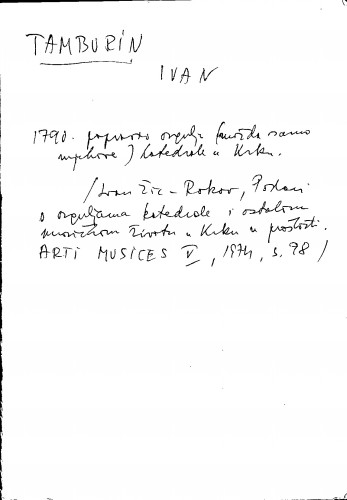 TAMBURIN
IVAN
1790. popravio orgulje (možda samo
mjehove) katedrale u Krku.
/Ivan Žic - Rokov, Podaci
o orguljama katedrale i ostalom
muzičkom životu u Krku u prošlosti.
ARTI MUSICES V, 1974, s. 98/